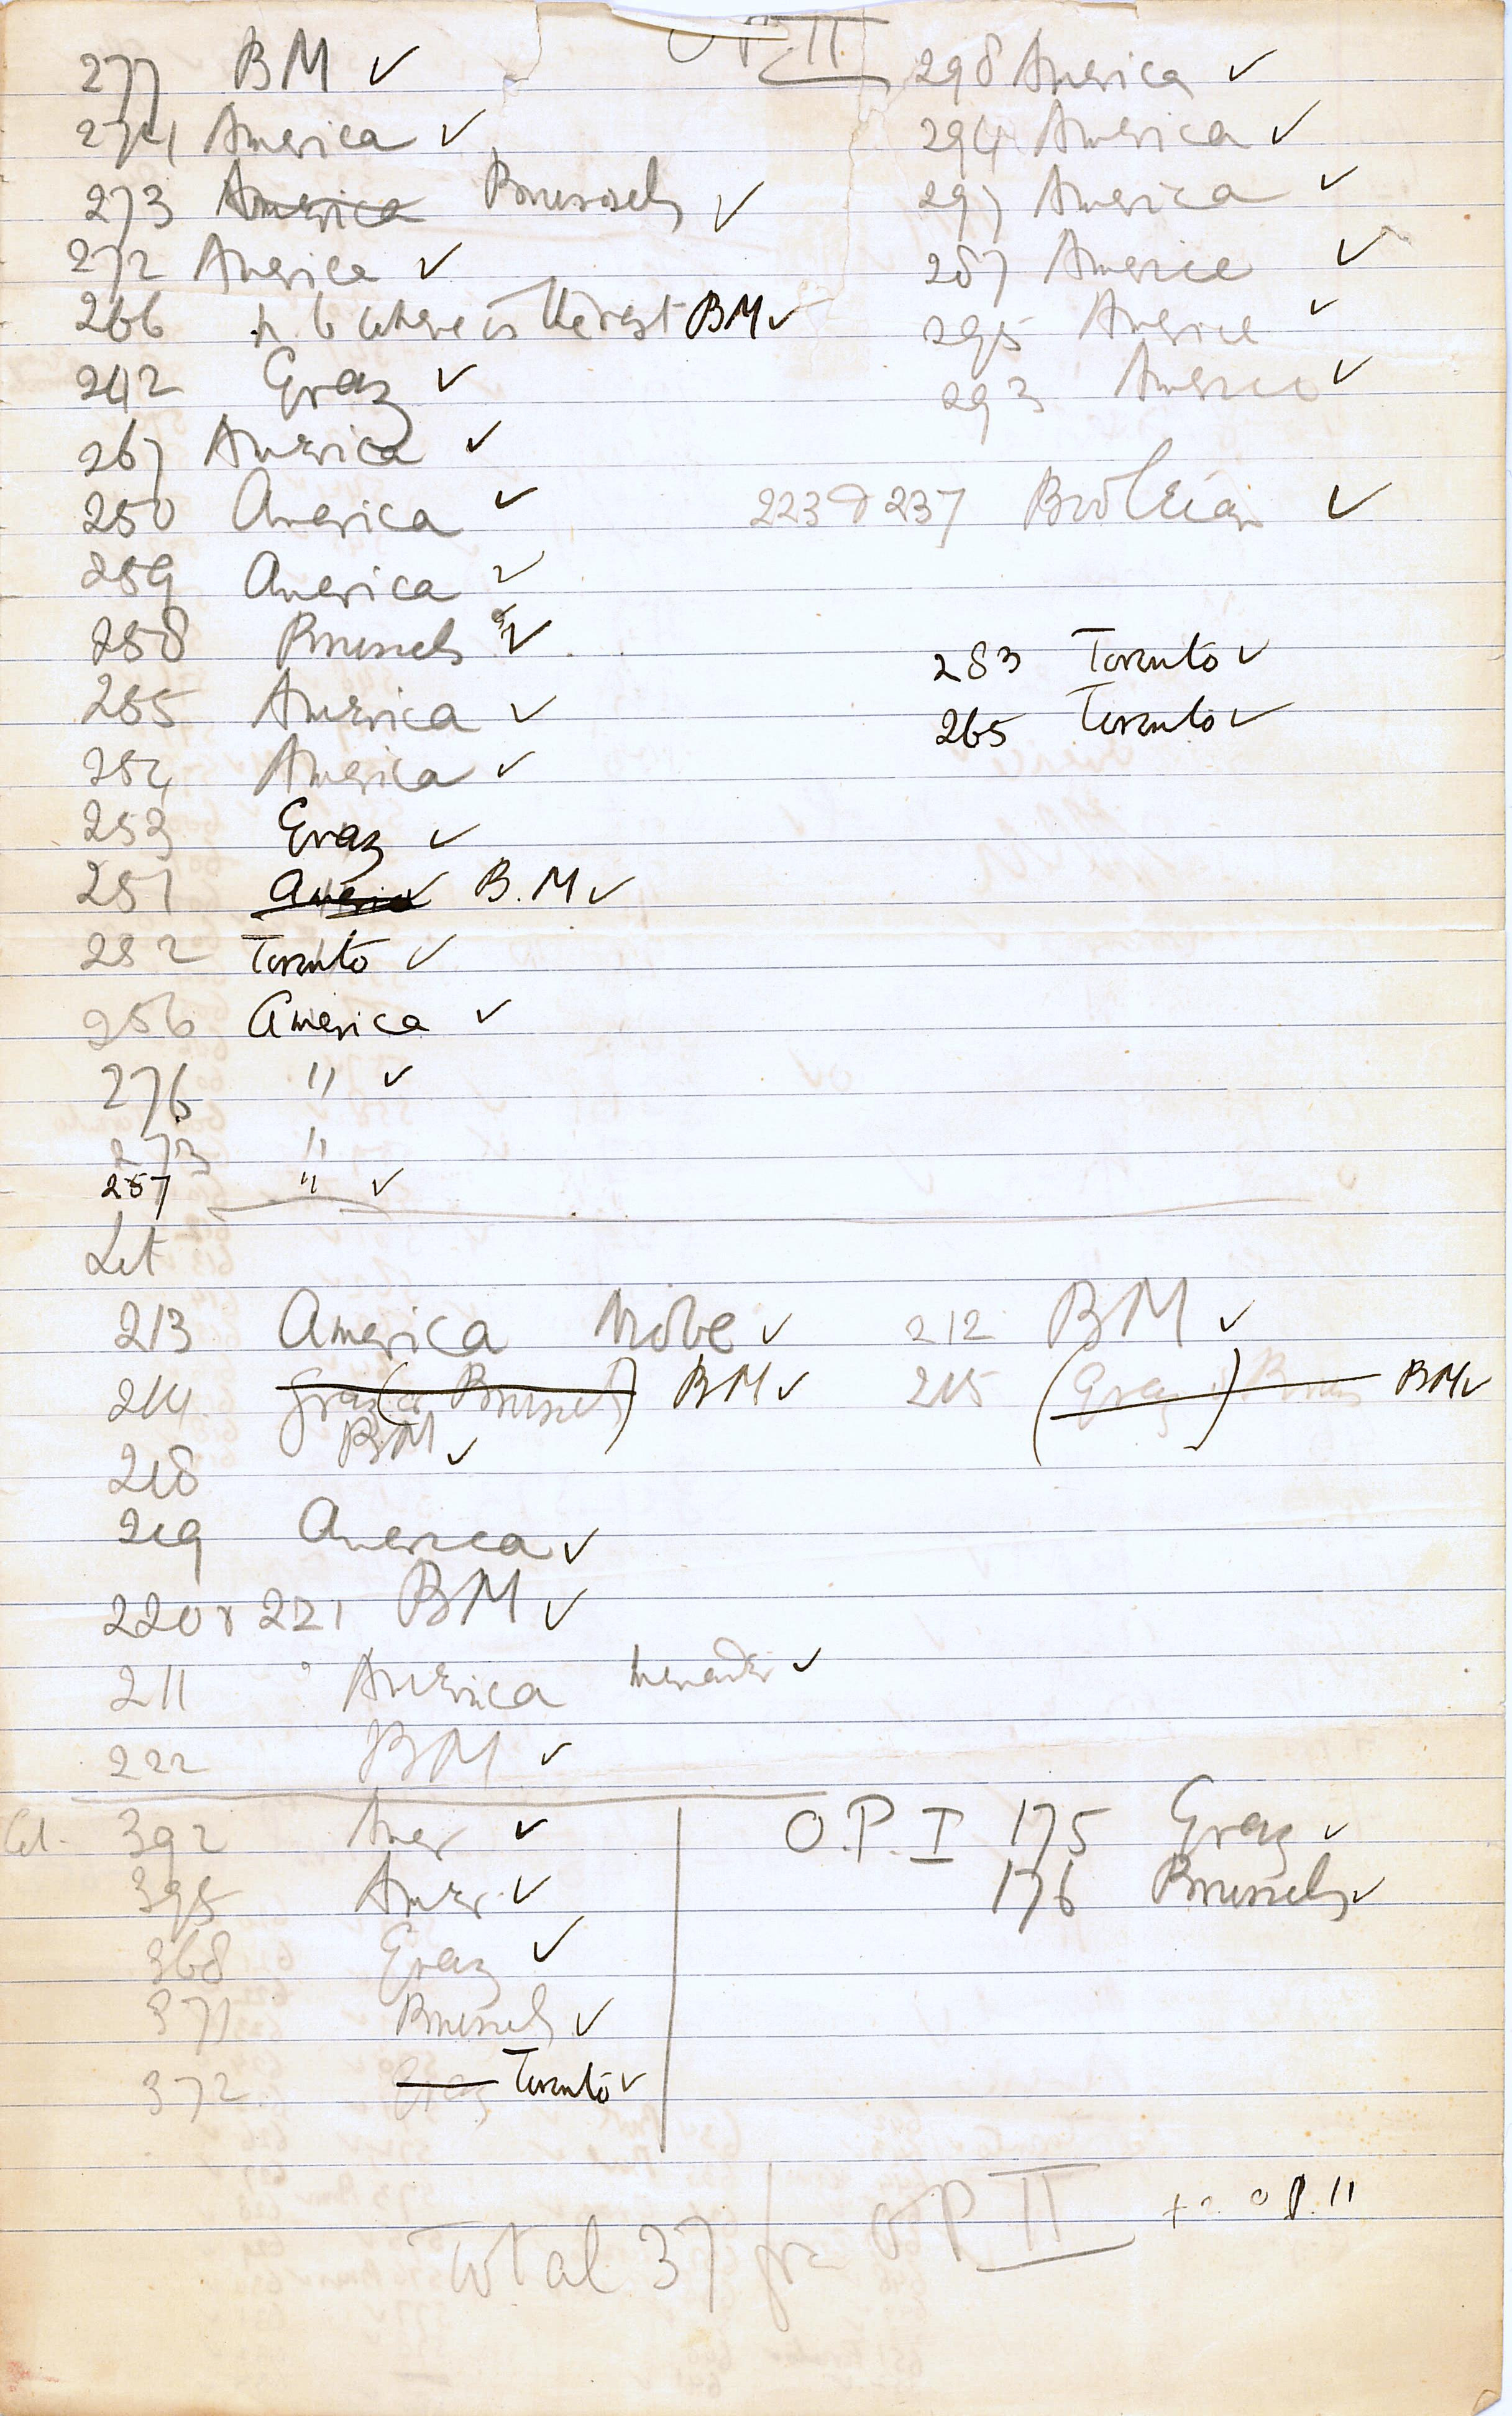 O.P. II
277 BM ✓
274 America ✓
273 America Brussels ✓
272 America ✓
266 where is the rest BM ✓
242 Graz ✓
267 America ✓
250 America ✓
259 America ✓
258 Brussels ✓
255 America ✓
254 America ✓
253 Graz ✓
251 B.M ✓
252 Toronto ✓
256 America ✓
276 " ✓
273 "
257 " ✓
298 America ✓
294 America ✓
297 America ✓
287 America ✓
295 America ✓
293 America ✓
223 & 237 Bodleian ✓
283 Toronto ✓
265 Toronto ✓
Lit
213 America Niobe ✓
214 Graz (or Brussels) BM ✓
218 BM ✓
219 America ✓
220 & 221 BM ✓
211 America menander ✓
222 BM ✓
212 BM ✓
215 (Graz) BM ✓
392 Amer ✓
395 Amer ✓
368 Graz ✓
371 Brussels ✓
372 Graz Toronto ✓
O.P. I 175 Graz ✓
176 Brussels ✓
Total 37 for OP II
O P. II